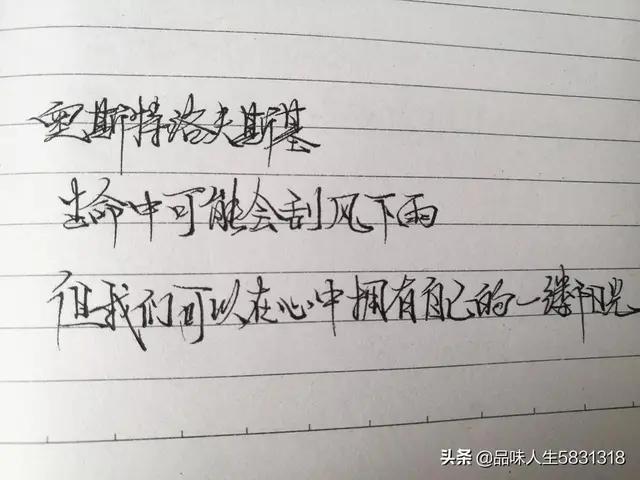 奥斯特洛夫斯基
生命中可能会刮风下雨
但我们可以在心中拥有自己的一缕阳光
头条 @品味人生5831318